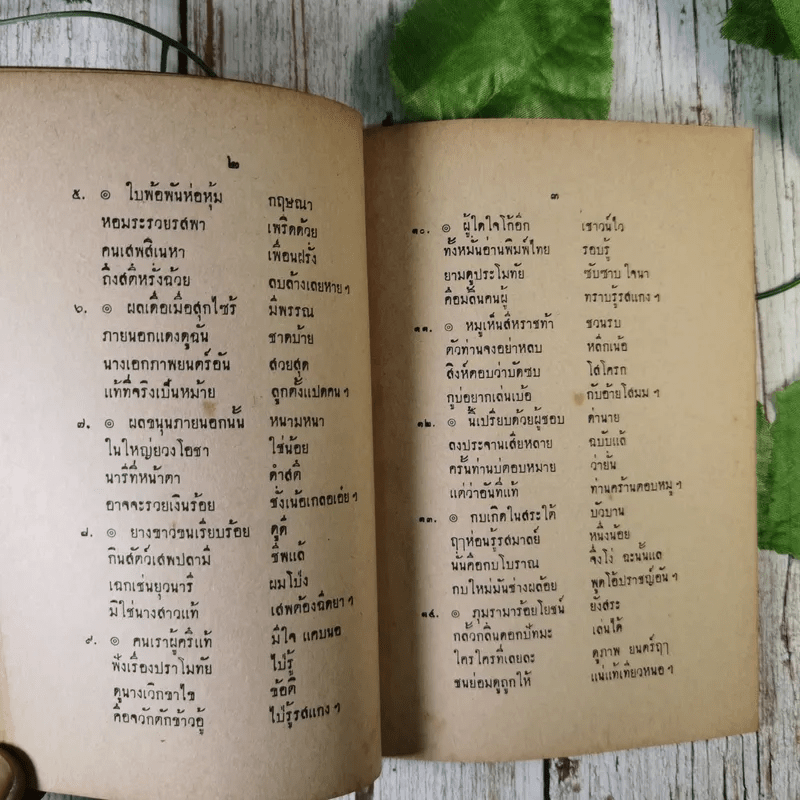 ๒
๕. ๏ ใบพ้อพันห่อหุ้ม กฤษณา
หอมระรวยรสพา เพริดด้วย
คนเสพสิเนหา เพื่อนฝรั่ง
ถึงสติหรั่งฉ้วย ลบล้างเลยหาย ฯ
๖. ๏ ผลเดื่อเมื่อสุกไซร้ มีพรรณ
ภายนอกแดงดูฉัน ชาดบ้าย
นางเอกภาพยนตร์อัน สวยสุด
แท้ที่จริงเป็นหม้าย ลูกตั้งแปดคน ฯ
๗. ๏ ผลขนุนภายนอกนั้น หนามหนา
ในใหญ่ยวงโอชา ใช่น้อย
นารีที่หน้าตา ดำสดี
อาจจะรวยเงินร้อย ชั่งเน้อเกลอเอ๋ย ฯ
๘. ๏ ยางขาวขนเรียบร้อย ดูดี
กินสัตว์เสพปลามี ชีพแล้
เฉกเช่นยุวนารี ผมโป่ง
มิใช่นางสาวแท้ เสพต้องฉีดยา ฯ
๙. ๏ คนเราผู้ครึแท้ มีใจ แคบนอ
ฟังเรื่องปราโมทัย ไป่รู้
ดูนางเวิกขาไข ข้อดี
คือจวักตักข้าวอู้ ไป่รู้รสแกง ฯ
๓
๑๐. ๏ ผู้ใดใจโก้อีก เชาวน์ไว
ทั้งหมั่นอ่านพิมพ์ไทย รอบรู้
ยามดูประโมทัย ซับซาบ ใจนา
คือมลิ้นคนผู้ ทราบรู้รสแกง ฯ
๑๑. ๏ หมูเห็นสีหราชท้า ชวนรบ
ตัวท่านจงอย่าหลบ หลีกเน้อ
สิงห์ตอบว่าบัดซบ โสโครก
กูบ่อยากเล่นเบ้อ กับอ้ายโสมม ฯ
๑๒. ๏ นี้เปรียบด้วยผู้ชอบ ค่านาย
ลงประจานเสียหลาย ฉบับแล้
ครั้นท่านบ่ตอบหมาย ว่ายั่น
แต่ว่าอันที่แท้ ท่านคร้านตอบหมู ฯ
๑๓. ๏ กบเกิดในสระใต้ บัวบาน
ฤๅห่อนรู้รสมาลย์ หนึ่งน้อย
นั่นคือกบโบราณ จึ่งโง่ ฉะนั้นแล
กบใหม่มันช่างผล้อย พูดโอ้ปราชญ์อัน ฯ
๑๔. ๏ ภุมรามาร้อยโยชน์ ยังสระ
กลั้วกลิ่นดอกปัทมะ เล่นได้
ใครใครที่เลยละ ดูภาพ ยนตร์ฤๅ
ชนย่อมดูถูกให้ แน่แท้เทียวหนอ ฯ